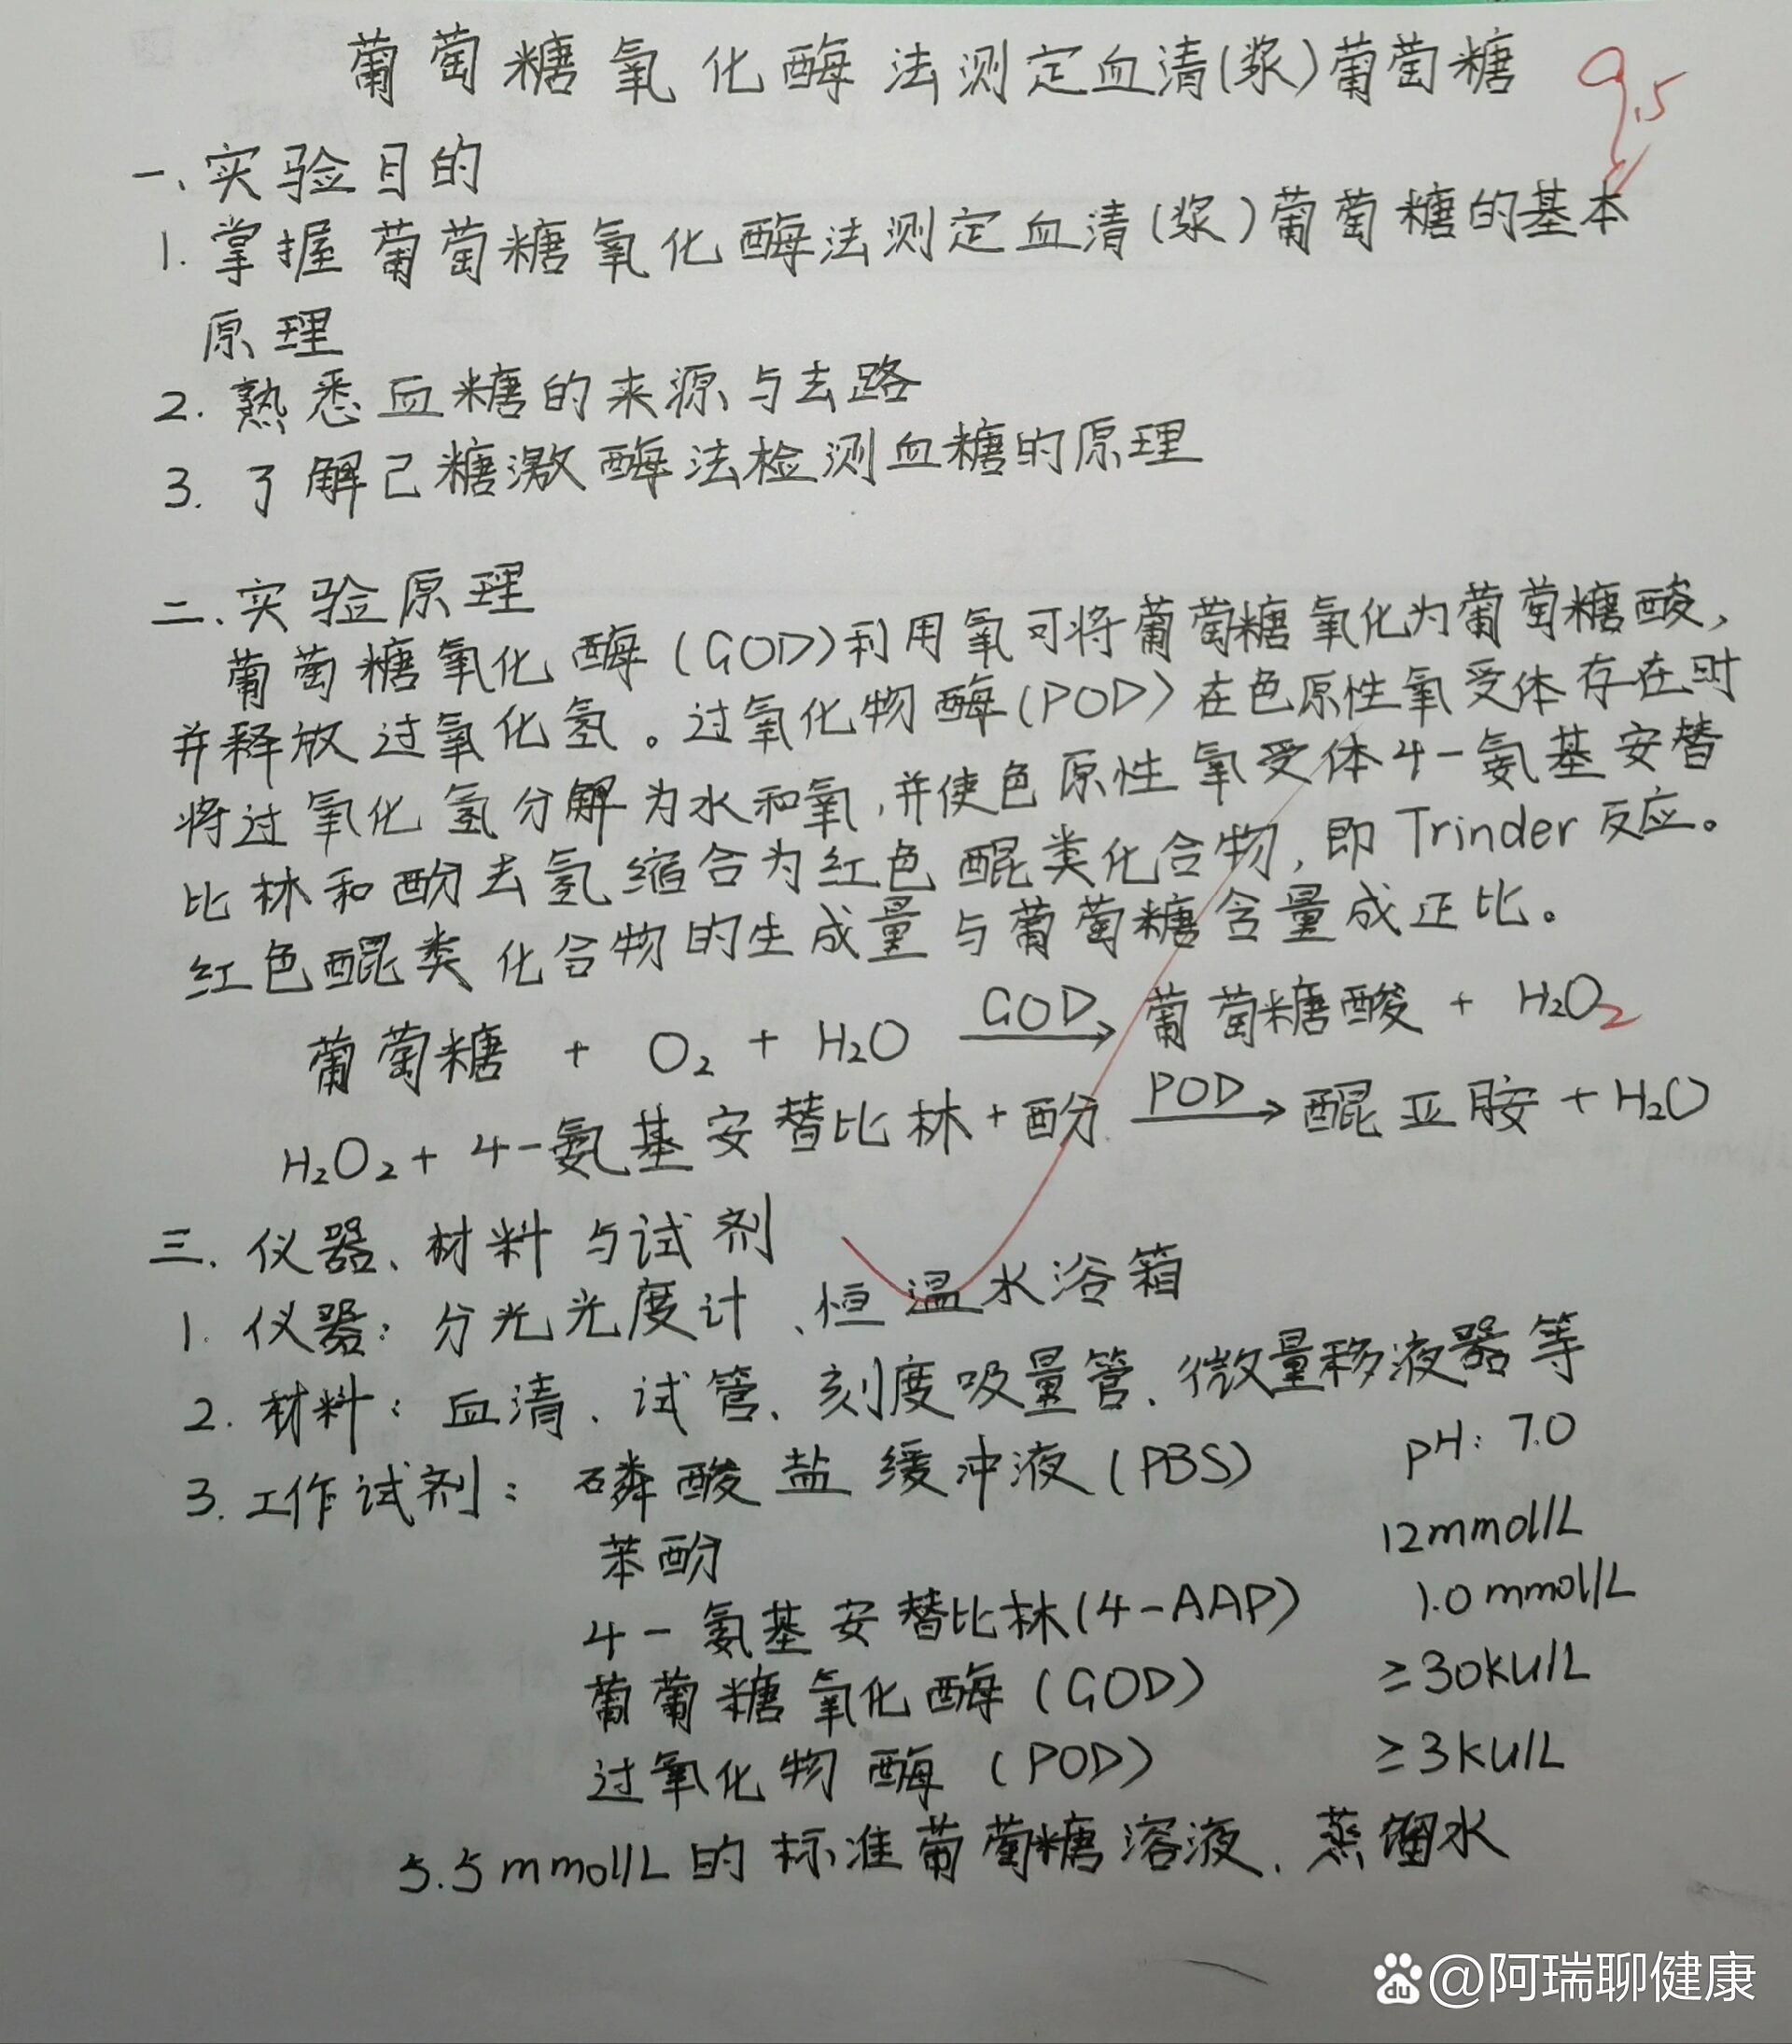 葡萄糖氧化酶法测定血清(浆)葡萄糖
9.5
一、实验目的
1. 掌握葡萄糖氧化酶法测定血清(浆)葡萄糖的基本
原理
2. 熟悉血糖的来源与去路
3. 了解己糖激酶法检测血糖的原理
二、实验原理
葡萄糖氧化酶(GOD)利用氧可将葡萄糖氧化为葡萄糖酸,
并释放过氧化氢。过氧化物酶(POD)在色原性氧受体存在时
将过氧化氢分解为水和氧,并使色原性氧受体4-氨基安替
比林和酚去氢缩合为红色醌类化合物,即Trinder反应。
红色醌类化合物的生成量与葡萄糖含量成正比。
葡萄糖 + O₂ + H₂O GOD→ 葡萄糖酸 + H₂O₂
H₂O₂ + 4-氨基安替比林+酚 POD→ 醌亚胺 + H₂O
三、仪器、材料与试剂
1. 仪器:分光光度计、恒温水浴箱
2. 材料:血清、试管、刻度吸量管、微量移液器等
3. 工作试剂:磷酸盐缓冲液(PBS) pH:7.0
苯酚 12mmol/L
4-氨基安替比林(4-AAP) 1.0mmol/L
葡萄糖氧化酶(GOD) ≥30KU/L
过氧化物酶(POD) ≥3KU/L
5.5mmol/L的标准葡萄糖溶液、蒸馏水
du @阿瑞聊健康